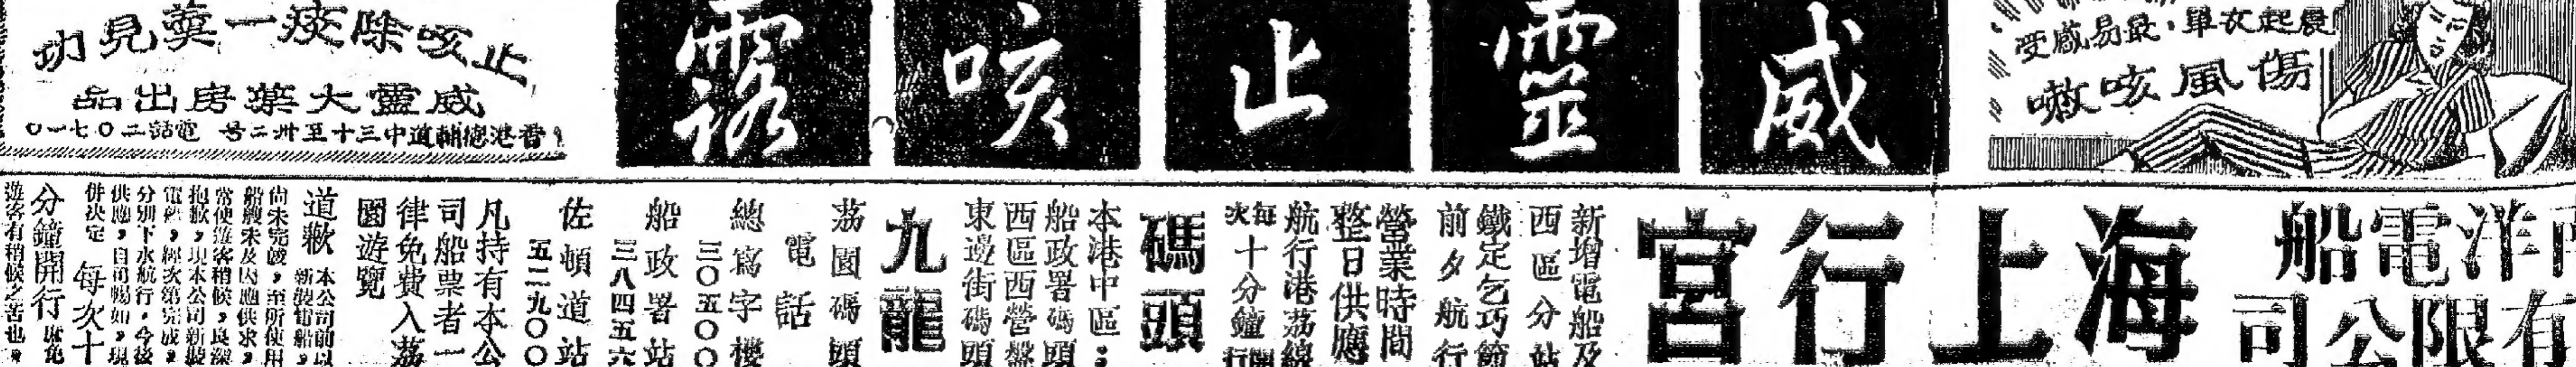 晨起衣單,最易感受
傷風咳嗽
威靈止咳露
止咳除痰一羹見功
威靈大藥房出品
香港德輔道中三十至卅二号 電話二〇七一〇
洋電船
有限公司
海上行宮
新增電船及
西區分站
鐵定乞巧節
前夕航行
營業時間
整日供應
航行港荔線
每次十分鐘開行
碼頭
本港中區:
船政署碼頭
西區西營盤
東邊街碼頭
九龍
荔園碼頭
電話
總寫字樓
三〇五〇〇
船政署站
三八四五六
佐頓道站
五二九〇〇
凡持有本公
司船票者一
律免費入荔
園遊覽
道歉
本公司前以
新裝電船,
尚未完竣,至所使用
船艘未及因應供求,
常使遊客稍候,良深
抱歉,現本公司新裝
電船,經次第完成,
分別下水航行,今後
供應,自可暢如,現
併決定
每次十
分鐘開行
庶免
遊客有稍候之苦也,